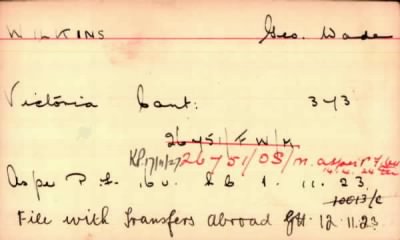 WILKINS Geo. Wade
Victoria Cant: 343
26451/F W/M
KP.17/11/27 26451/OS/M.
As per P. 1. 11. 23.
10013/C
File with Transfers Abroad 12.11.23